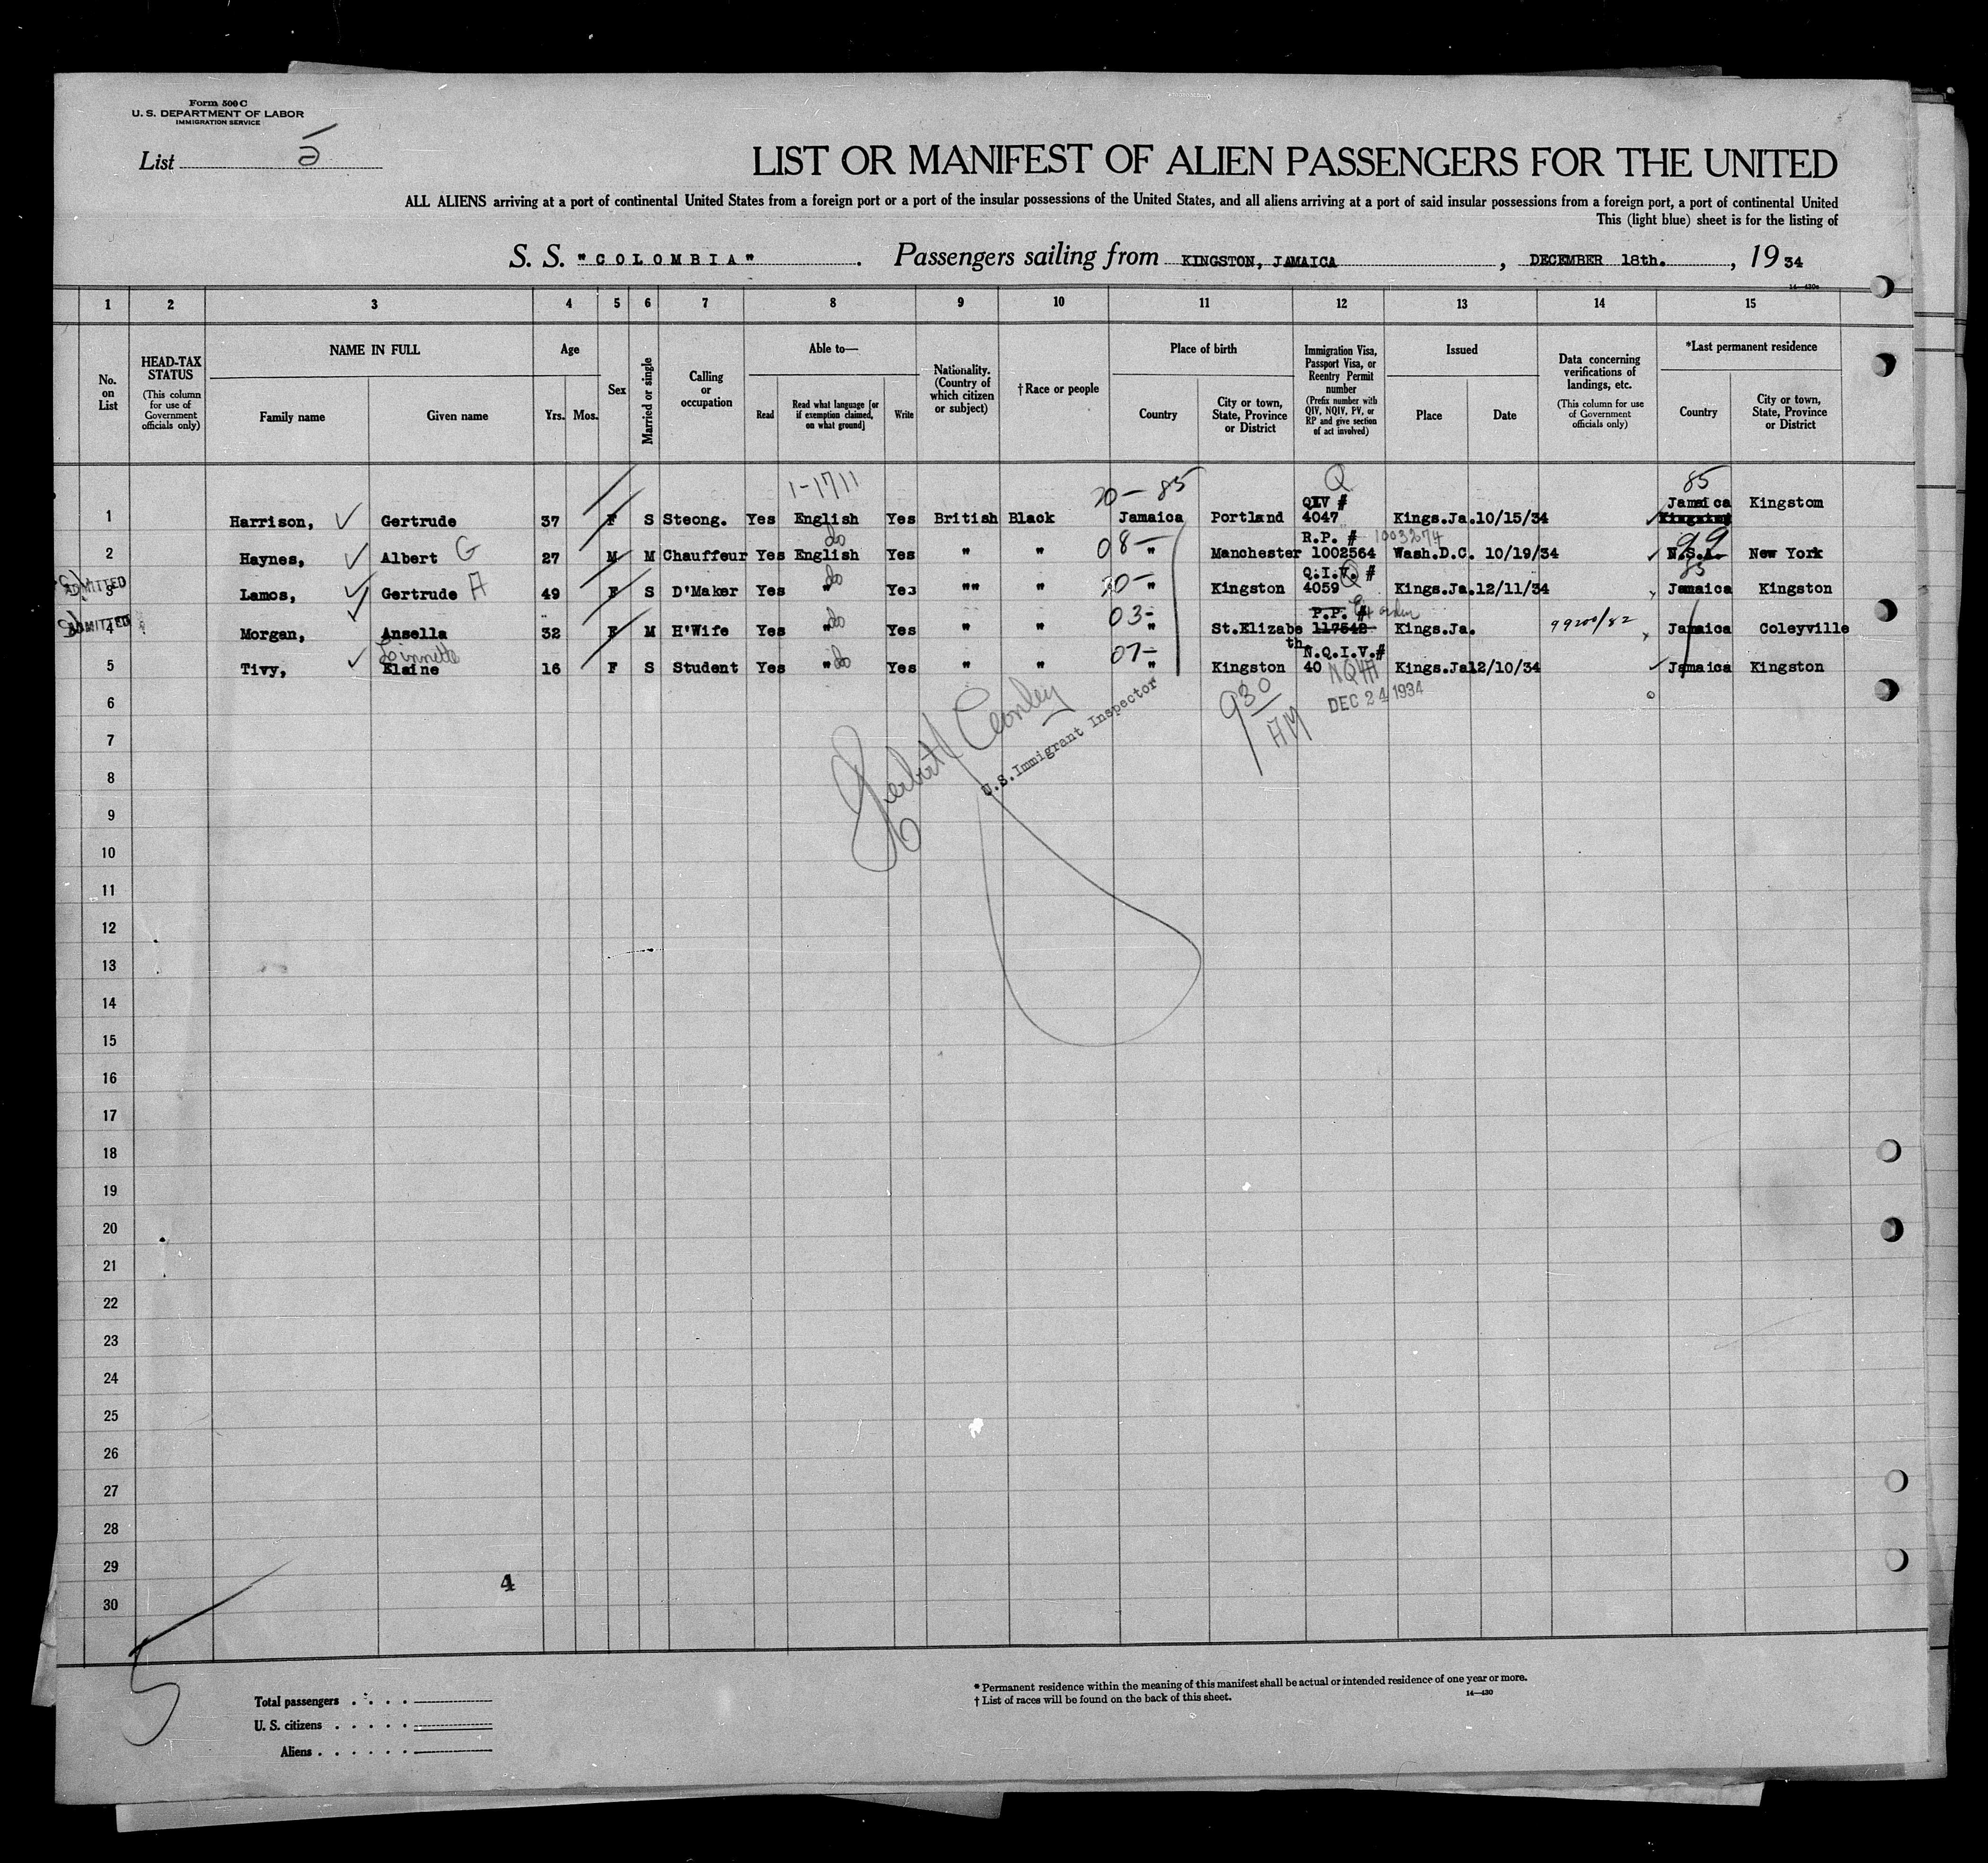 Form 500 C
U. S. DEPARTMENT OF LABOR
IMMIGRATION SERVICE
List 5
LIST OR MANIFEST OF ALIEN PASSENGERS FOR THE UNITED
ALL ALIENS arriving at a port of continental United States from a foreign port or a port of the insular possessions of the United States, and all aliens arriving at a port of said insular possessions from a foreign port, a port of continental United
This (light blue) sheet is for the listing of
S. S. "COLOMBIA". Passengers sailing from KINGSTON, JAMAICA, DECEMBER 18th., 1934
14-430a
1 2 3 4 5 6 7 8 9 10 11 12 13 14 15
No. on List
HEAD-TAX STATUS (This column for use of Government officials only)
NAME IN FULL
Family name
Given name
Age
Yrs. Mos.
Sex
Married or single
Calling or occupation
Able to—
Read
Read what language [or if exemption claimed, on what ground]
Write
Nationality. (Country of which citizen or subject)
† Race or people
Place of birth
Country
City or town, State, Province or District
Immigration Visa, Passport Visa, or Reentry Permit number (Prefix number with QIV, NQIV, PV, or RP and give section of act involved)
Issued
Place
Date
Data concerning verifications of landings, etc. (This column for use of Government officials only)
*Last permanent residence
Country
City or town, State, Province or District
1-1711 20-85 Q 85
1 Harrison, Gertrude 37 F S Steong. Yes English Yes British Black Jamaica Portland QIV # 4047 Kings.Ja. 10/15/34 Jamaica Kingstom
2 Haynes, Albert G 27 M M Chauffeur Yes English do Yes " " 08- " Manchester R.P. # 1003274 1002564 Wash.D.C. 10/19/34 99 N.S.A. New York
ADMITTED 3 Lamos, Gertrude A 49 F S D'Maker Yes " do Yes "" " 20- " Kingston Q.I.V. # Q 4059 Kings.Ja. 12/11/34 85 Jamaica Kingston
ADMITTED 4 Morgan, Ansella 32 F M H'Wife Yes " do Yes " " 03- " St.Elizabeth P.P. # 117542 Kings.Ja. 99200/82 Jamaica Coleyville
5 Tivy, Linnette Elaine 16 F S Student Yes " do Yes " " 07- " Kingston N.Q.I.V.# 40 Kings.Ja 12/10/34 Jamaica Kingston
6
DEC 24 1934
930 AM
U.S. Immigrant Inspector
7
8
9
10
11
12
13
14
15
16
17
18
19
20
21
22
23
24
25
26
27
28
29
4
30
5
Total passengers
U. S. citizens
Aliens
* Permanent residence within the meaning of this manifest shall be actual or intended residence of one year or more.
† List of races will be found on the back of this sheet.
14-430